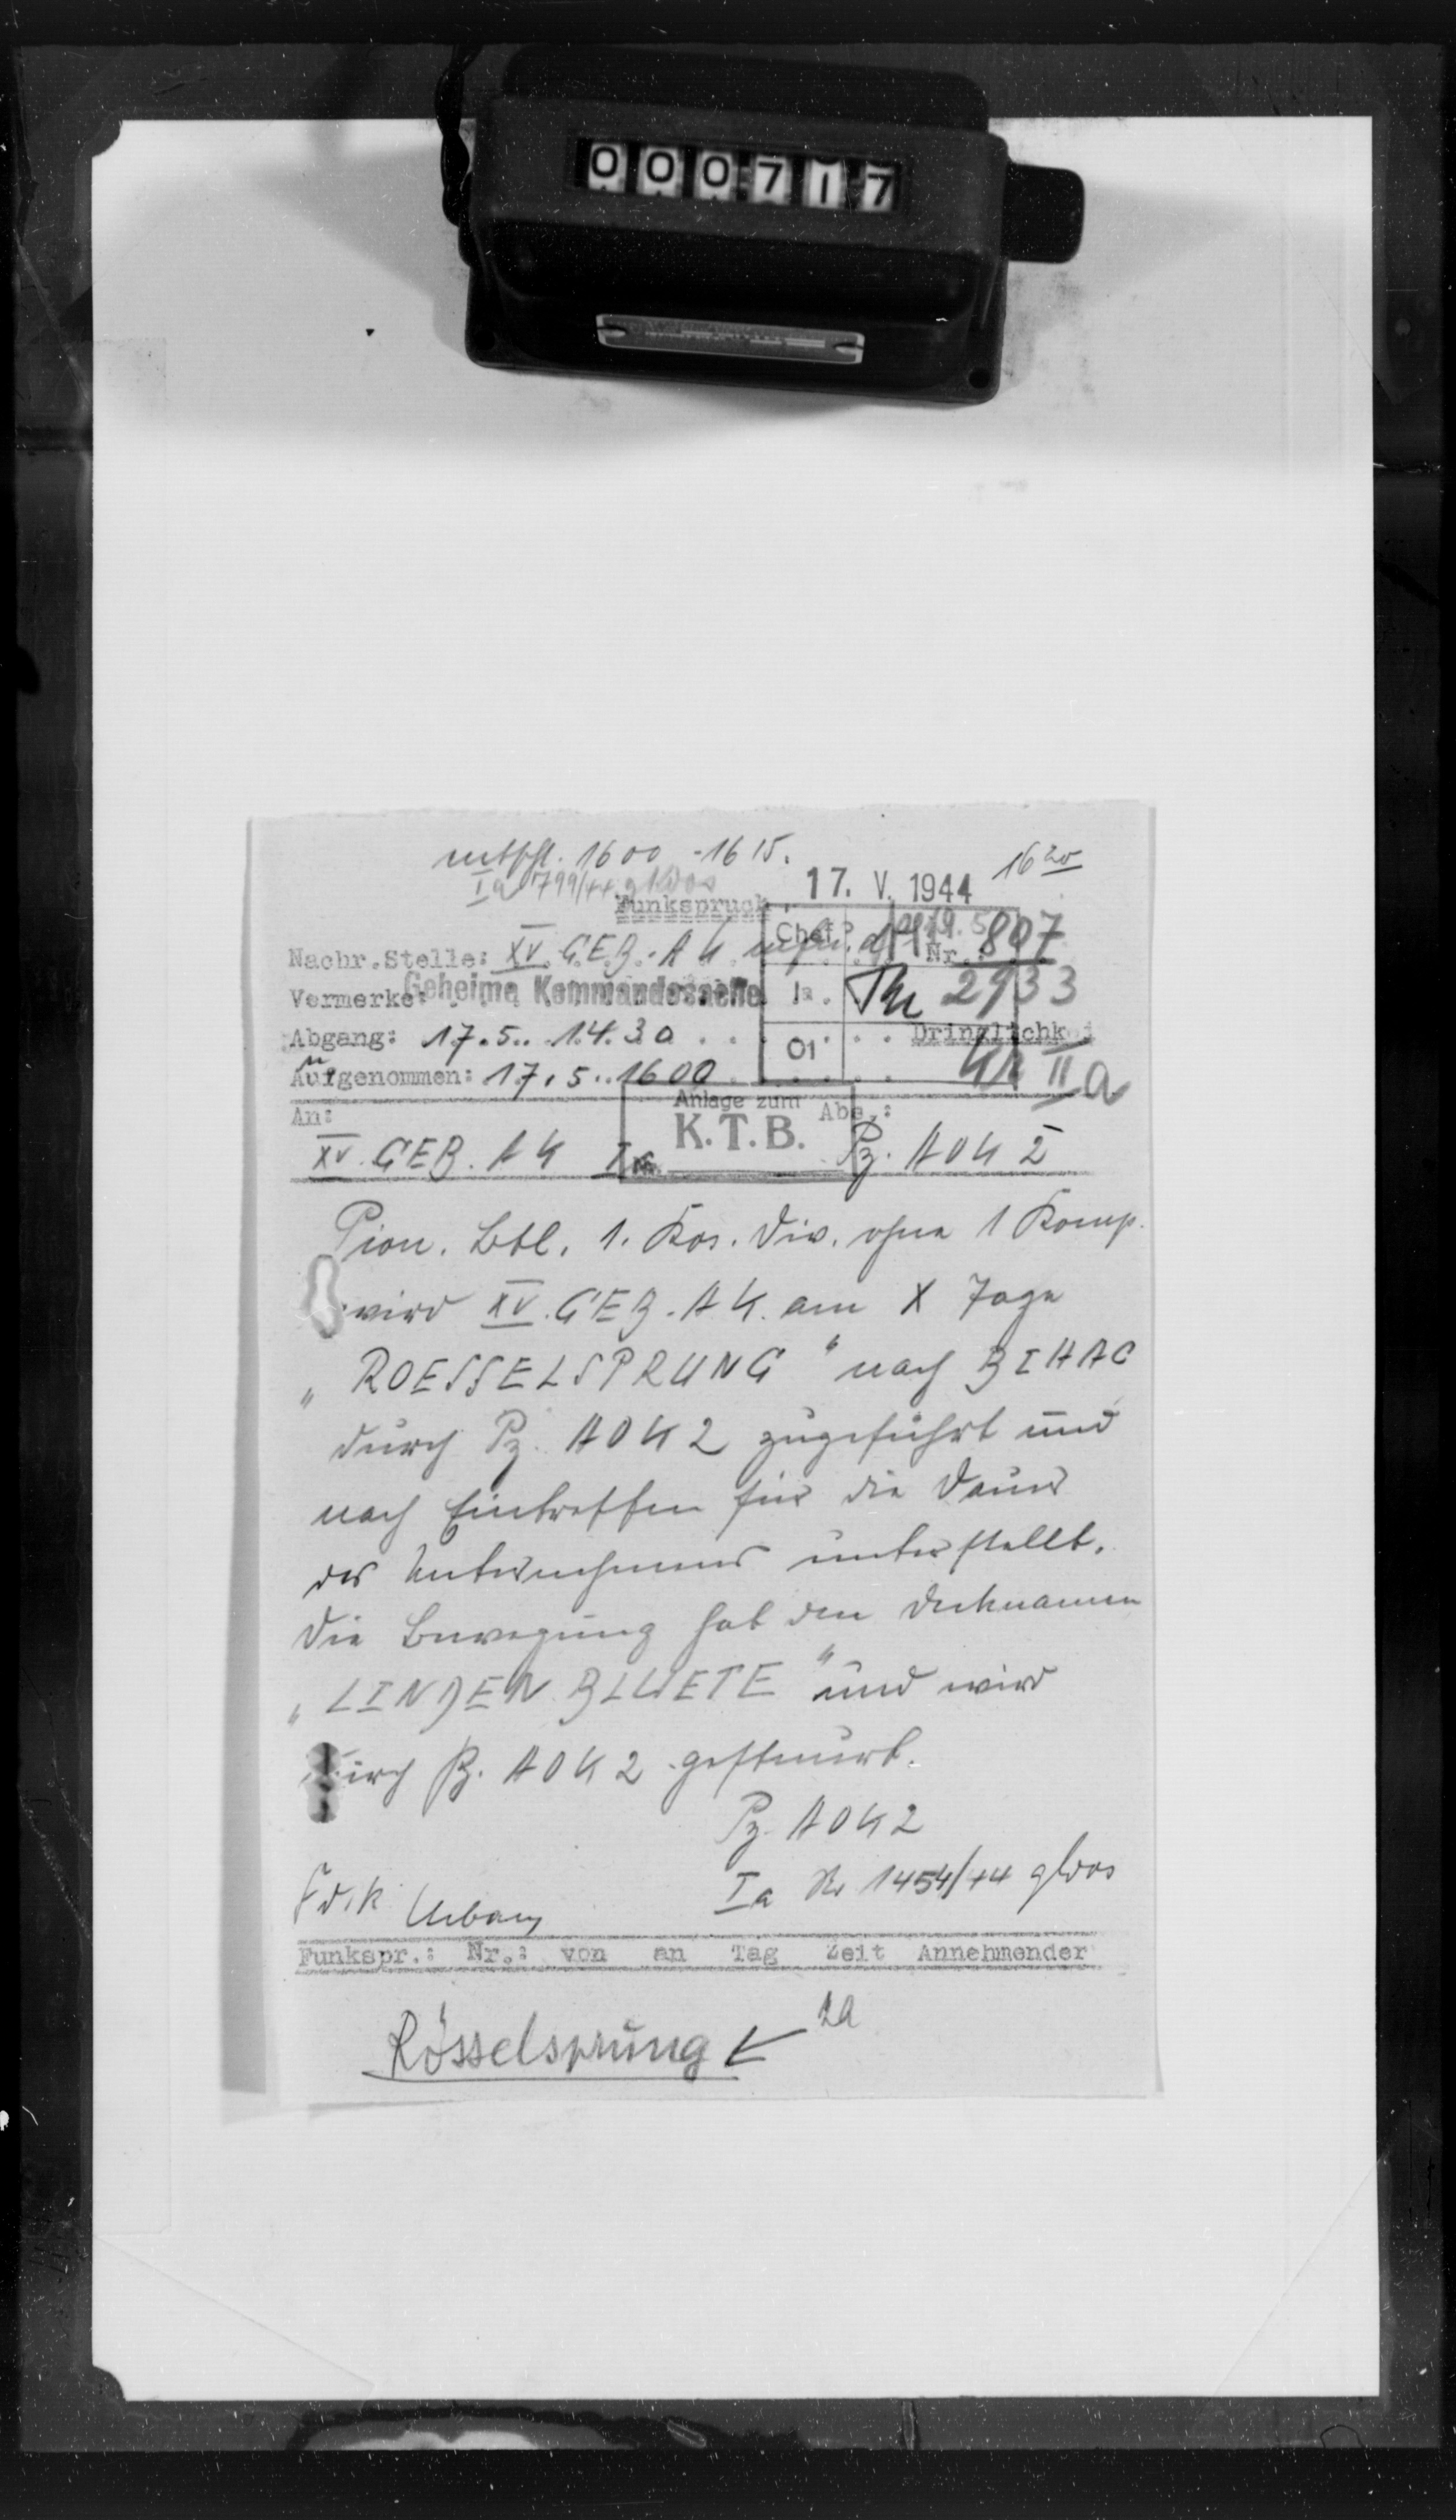 000717
entschl. 1600 - 1615.
16 20
Ia 799/44 gKdos
17. V. 1944
Funkspruch
Chef
Nachr.Stelle: XV. GEB. A K
Nr. 807
Vermerke: Geheime Kommandosache
Ia
2933
Abgang: 17.5. 14.30
Dringlichkei
O1
Aufgenommen: 17.5. 1600
KR IIa
An:
Anlage zum
K.T.B.
Abs.:
Nr.
XV. GEB. A K Ia
Pz. AOK 2
Pion. Btl. 1. Kos. Div. ohne 1 Komp.
wird XV. GEB. A K. am X Tage
„ROESSELSPRUNG" nach BIHAC
durch Pz. AOK 2 zugeführt und
nach Eintreffen für die Dauer
des Unternehmens unterstellt.
Die Bewegung hat den Decknamen
„LINDENBLUETE" und wird
durch Pz. AOK 2 gesteuert.
Pz. AOK 2
Ia Nr 1454/44 gKdos
F.d.R. Urban
Funkspr.: Nr.: von an Tag Zeit Annehmender
Rösselsprung